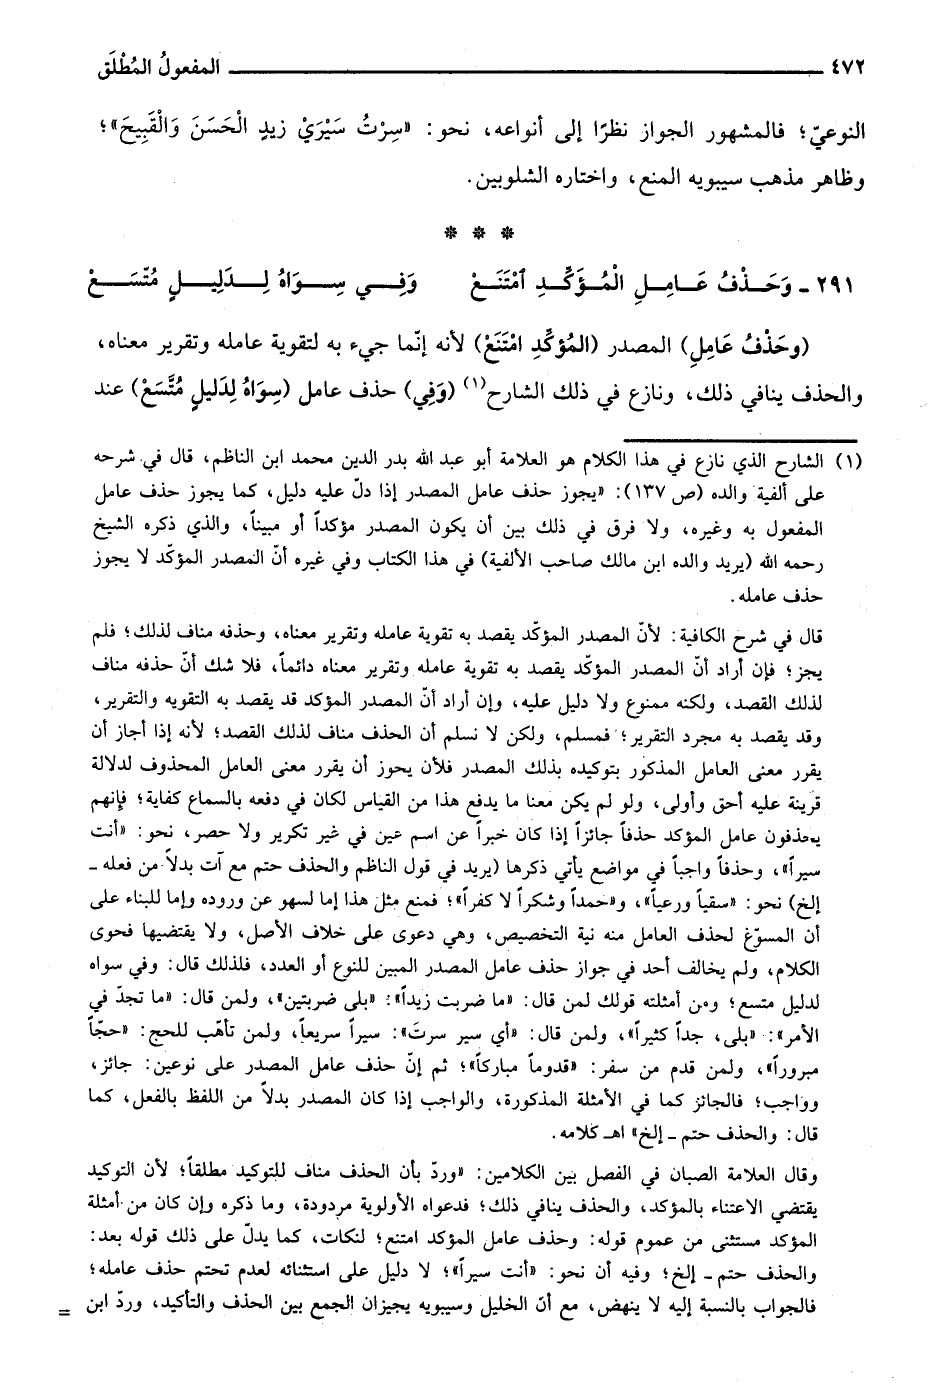 ٤٧٢ المفعولُ المُطْلَق
النوعيّ؛ فالمشهور الجواز نظرًا إلى أنواعه، نحو: «سِرْتُ سَيْرَيْ زيدٍ الْحَسَنَ وَالْقَبِيحَ»؛
وظاهر مذهب سيبويه المنع، واختاره الشلوبين.
* * *
٢٩١ ـ وَحَذْفُ عَامِلِ الْمُؤَكِّدِ ٱمْتَنَعْ وَفِي سِوَاهُ لِدَلِيلٍ مُتَّسَعْ
(وحَذْفُ عَامِلِ) المصدر (المُؤكِّدِ امْتَنَعْ) لأنه إنّما جيء به لتقوية عامله وتقرير معناه،
والحذف ينافي ذلك، ونازع في ذلك الشارح(١) (وَفِي) حذف عامل (سِوَاهُ لِدَليلٍ مُتَّسَعْ) عند
(١) الشارح الذي نازع في هذا الكلام هو العلامة أبو عبد الله بدر الدين محمد ابن الناظم، قال في شرحه
على ألفية والده (ص ١٣٧): «يجوز حذف عامل المصدر إذا دلّ عليه دليل، كما يجوز حذف عامل
المفعول به وغيره، ولا فرق في ذلك بين أن يكون المصدر مؤكداً أو مبيناً، والذي ذكره الشيخ
رحمه الله (يريد والده ابن مالك صاحب الألفية) في هذا الكتاب وفي غيره أنّ المصدر المؤكّد لا يجوز
حذف عامله.
قال في شرح الكافية: لأنّ المصدر المؤكّد يقصد به تقوية عامله وتقرير معناه، وحذفه مناف لذلك؛ فلم
يجز؛ فإن أراد أنّ المصدر المؤكّد يقصد به تقوية عامله وتقرير معناه دائماً، فلا شك أنّ حذفه مناف
لذلك القصد، ولكنه ممنوع ولا دليل عليه، وإن أراد أنّ المصدر المؤكد قد يقصد به التقويه والتقرير،
وقد يقصد به مجرد التقرير؛ فمسلم، ولكن لا نسلم أن الحذف مناف لذلك القصد؛ لأنه إذا أجاز أن
يقرر معنى العامل المذكور بتوكيده بذلك المصدر فلأن يحوز أن يقرر معنى العامل المحذوف لدلالة
قرينة عليه أحق وأولى، ولو لم يكن معنا ما يدفع هذا من القياس لكان في دفعه بالسماع كفاية؛ فإنهم
يحذفون عامل المؤكد حذفاً جائزاً إذا كان خبراً عن اسم عين في غير تكرير ولا حصر، نحو: «أنت
سيراً»، وحذفاً واجباً في مواضع يأتي ذكرها (يريد في قول الناظم والحذف حتم مع آت بدلاً من فعله ـ
إلخ) نحو: «سقياً ورعياً»، و«حمداً وشكراً لا كفراً»؛ فمنع مثل هذا إما لسهو عن وروده وإما للبناء على
أن المسوّغ لحذف العامل منه نية التخصيص، وهي دعوى على خلاف الأصل، ولا يقتضيها فحوى
الكلام، ولم يخالف أحد في جواز حذف عامل المصدر المبين للنوع أو العدد، فلذلك قال: وفي سواه
لدليل متسع؛ ومن أمثلته قولك لمن قال: «ما ضربت زيداً»: «بلى ضربتين»، ولمن قال: «ما تجدّ في
الأمر»: «بلى، جداً كثيراً»، ولمن قال: «أي سير سرتَ»: سيراً سريعاً، ولمن تأهّب للحج: «حجّاً
مبروراً»، ولمن قدم من سفر: «قدوماً مباركاً»؛ ثم إنّ حذف عامل المصدر على نوعين: جائز،
وواجب؛ فالجائز كما في الأمثلة المذكورة، والواجب إذا كان المصدر بدلاً من اللفظ بالفعل، كما
قال: والحذف حتم ـ إلخ» اهـ كلامه.
وقال العلامة الصبان في الفصل بين الكلامين: «وردّ بأن الحذف مناف للتوكيد مطلقاً؛ لأن التوكيد
يقتضي الاعتناء بالمؤكد، والحذف ينافي ذلك؛ فدعواه الأولوية مردودة، وما ذكره وإن كان من أمثلة
المؤكد مستثنى من عموم قوله: وحذف عامل المؤكد امتنع؛ لنكات، كما يدلّ على ذلك قوله بعد:
والحذف حتم ـ إلخ؛ وفيه أن نحو: «أنت سيراً»؛ لا دليل على استثنائه لعدم تحتم حذف عامله؛
فالجواب بالنسبة إليه لا ينهض، مع أن الخليل وسيبويه يجيزان الجمع بين الحذف والتأكيد، وردّ ابن =